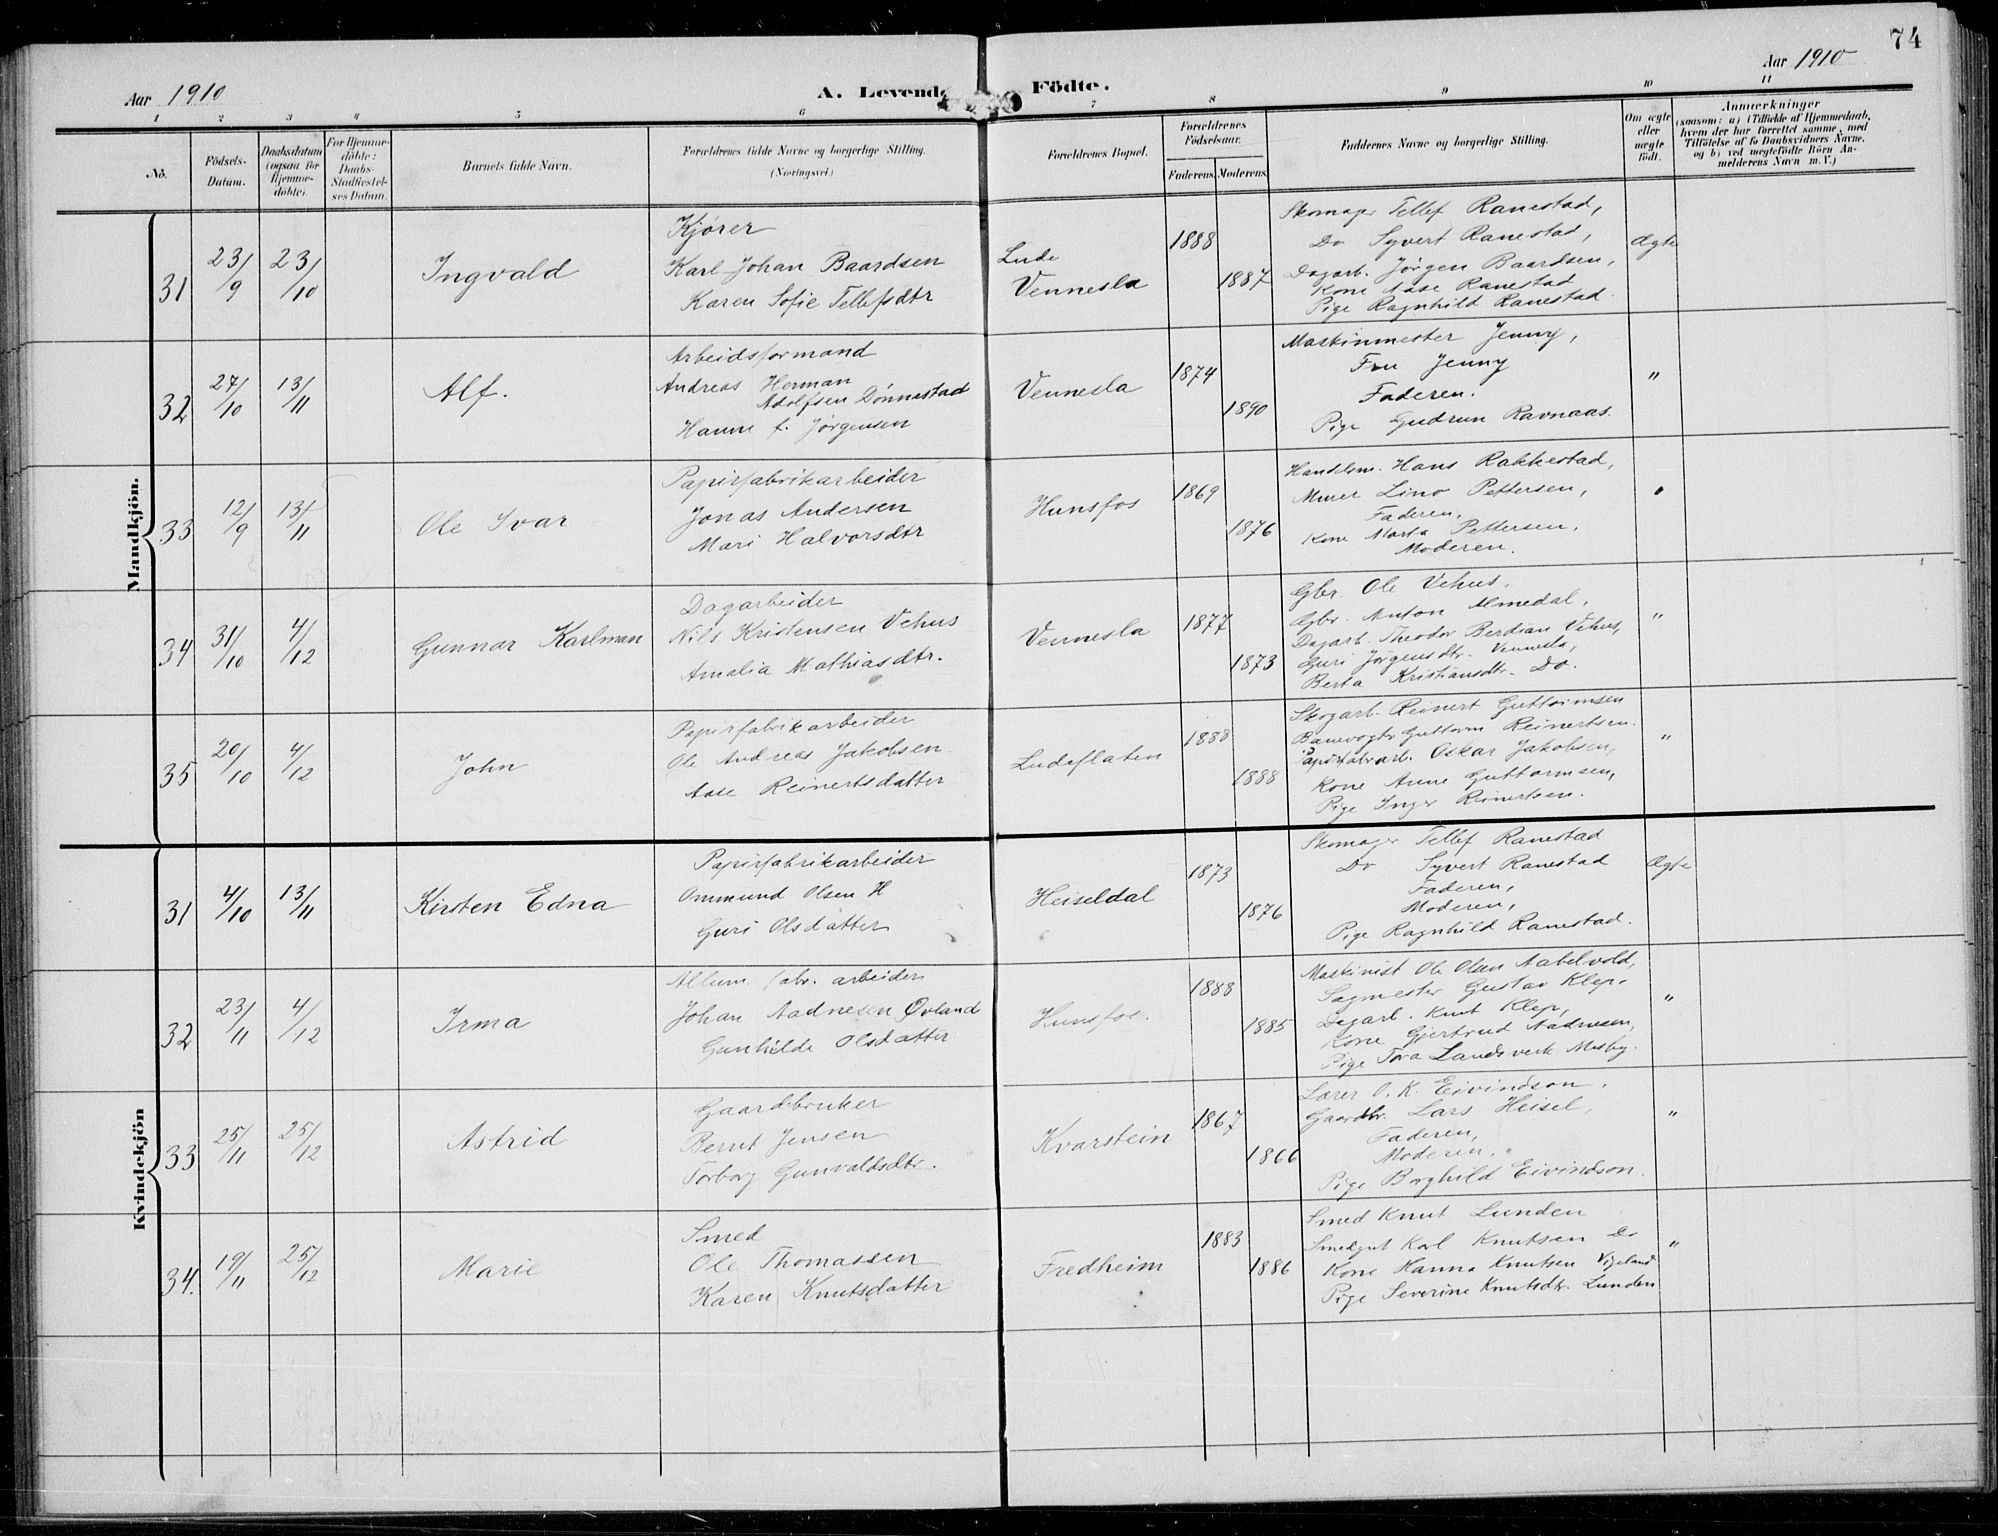 74
Aar 1910
A. Levende Födte.
Aar 1910
1 2 3 4 5 6 7 8 9 10 11
No.
Födsels-Datum.
Daabsdatum (ogsaa for Hjemmedöbte).
For Hjemmedöbte: Daabs-Stadfæstelses Datum.
Barnets fulde Navn.
Forældrenes fulde Navne og borgerlige Stilling.
(Næringsvei.)
Forældrenes Bopæl.
Forældrenes Födselsaar.
Faderens. Moderens.
Faddernes Navne og borgerlige Stilling.
Om ægte eller uægte födt.
Anmærkninger
(saasom: a) i Tilfælde af Hjemmedaab, hvem der har forrettet samme, med Tilföielse af to Daabsvidners Navne, og b) ved uægtefödte Börn Anmelderens Navn m. V.)
Mandkjön.
31 23/9 23/10 Ingvald
Kjører
Karl Johan Baardsen
Karen Sofie Tellefsdtr
Lude
Vennesla
1888
1887
Skomager Tellef Ranestad,
Do Syvert Ranestad,
Dagarb. Jørgen Baardsen,
Kone Aase Ranestad
Pige Ragnhild Ranestad.
Ægte
32 27/10 13/11 Alf.
Arbeidsformand
Andreas Herman
Adolfsen Dønnestad
Hanne f. Jørgensen
Vennesla
1874
1890
Maskinmester Jenny,
Fru Jenny
Faderen.
Pige Gudrun Ravnaas.
"
33 12/9 13/11 Ole Ivar
Papirfabrikarbeider
Jonas Andersen
Mari Halvorsdtr
Hunsfos
1869
1876
Handelsm. Hans Rakkestad,
Murer Lino Pettersen,
Faderen,
Kone Marta Pettersen,
Moderen.
"
34 31/10 4/12 Gunnar Karlman
Dagarbeider
Nils Kristensen Vehus
Amalia Mathiasdtr.
Vennesla
1877
1873
Gbr. Ole Vehus.
Gbr. Anton Almedal,
Dagarb. Theodor Berdian Vehus,
Guri Jørgensdtr. Vennesla,
Berta Kristiansdtr. Do.
"
35 20/10 4/12 John
Papirfabrikarbeider
Ole Andreas Jakobsen
Aase Reinertsdatter
Ludeflaten
1888
1888
Skogarb. Reinert Guttormsen
Banevogter Guttorm Reinertsen.
Papirfabrarb. Oskar Jakobsen,
Kone Anne Guttormsen,
Pige Inger Reinertsen.
"
Kvindekjön
31 4/10 13/11 Kirsten Edna
Papirfabrikarbeider
Ommund Olsen H
Guri Olsdatter
Heiseldal
1873
1876
Skomager Tellef Ranestad
Do Syvert Ranestad
Faderen,
Moderen,
Pige Ragnhild Ranestad.
Ægte
32 23/11 4/12 Irma
Allum. fabr. arbeider
Johan Aadnesen Øvland
Gunhilde Olsdatter
Hunsfos.
1888
1885
Maskinist Ole Olsen Aabelvold,
Sagmester Gustav Klep,
Dagarb. Knut Klep,
Kone Gjertrud Aadnesen,
Pige Tora Landsverk Mosby.
"
33 25/11 25/12 Astrid
Gaardbruker
Bernt Jensen
Torborg Gunvaldsdtr.
Kvarstein
1867
1866
Lærer O. K. Eivindson,
Gaardbr. Lars Heisel,
Faderen,
Moderen,
Pige Borghild Eivindson.
"
34. 19/11 25/12 Marie
Smed
Ole Thomassen
Karen Knutsdatter
Fredheim
1883
1886
Smed Knut Lunden
Smedgut Karl Knutsen Do
Kone Hanna Knutsen Vigeland
Pige Severine Knutsdtr. Lunden
"